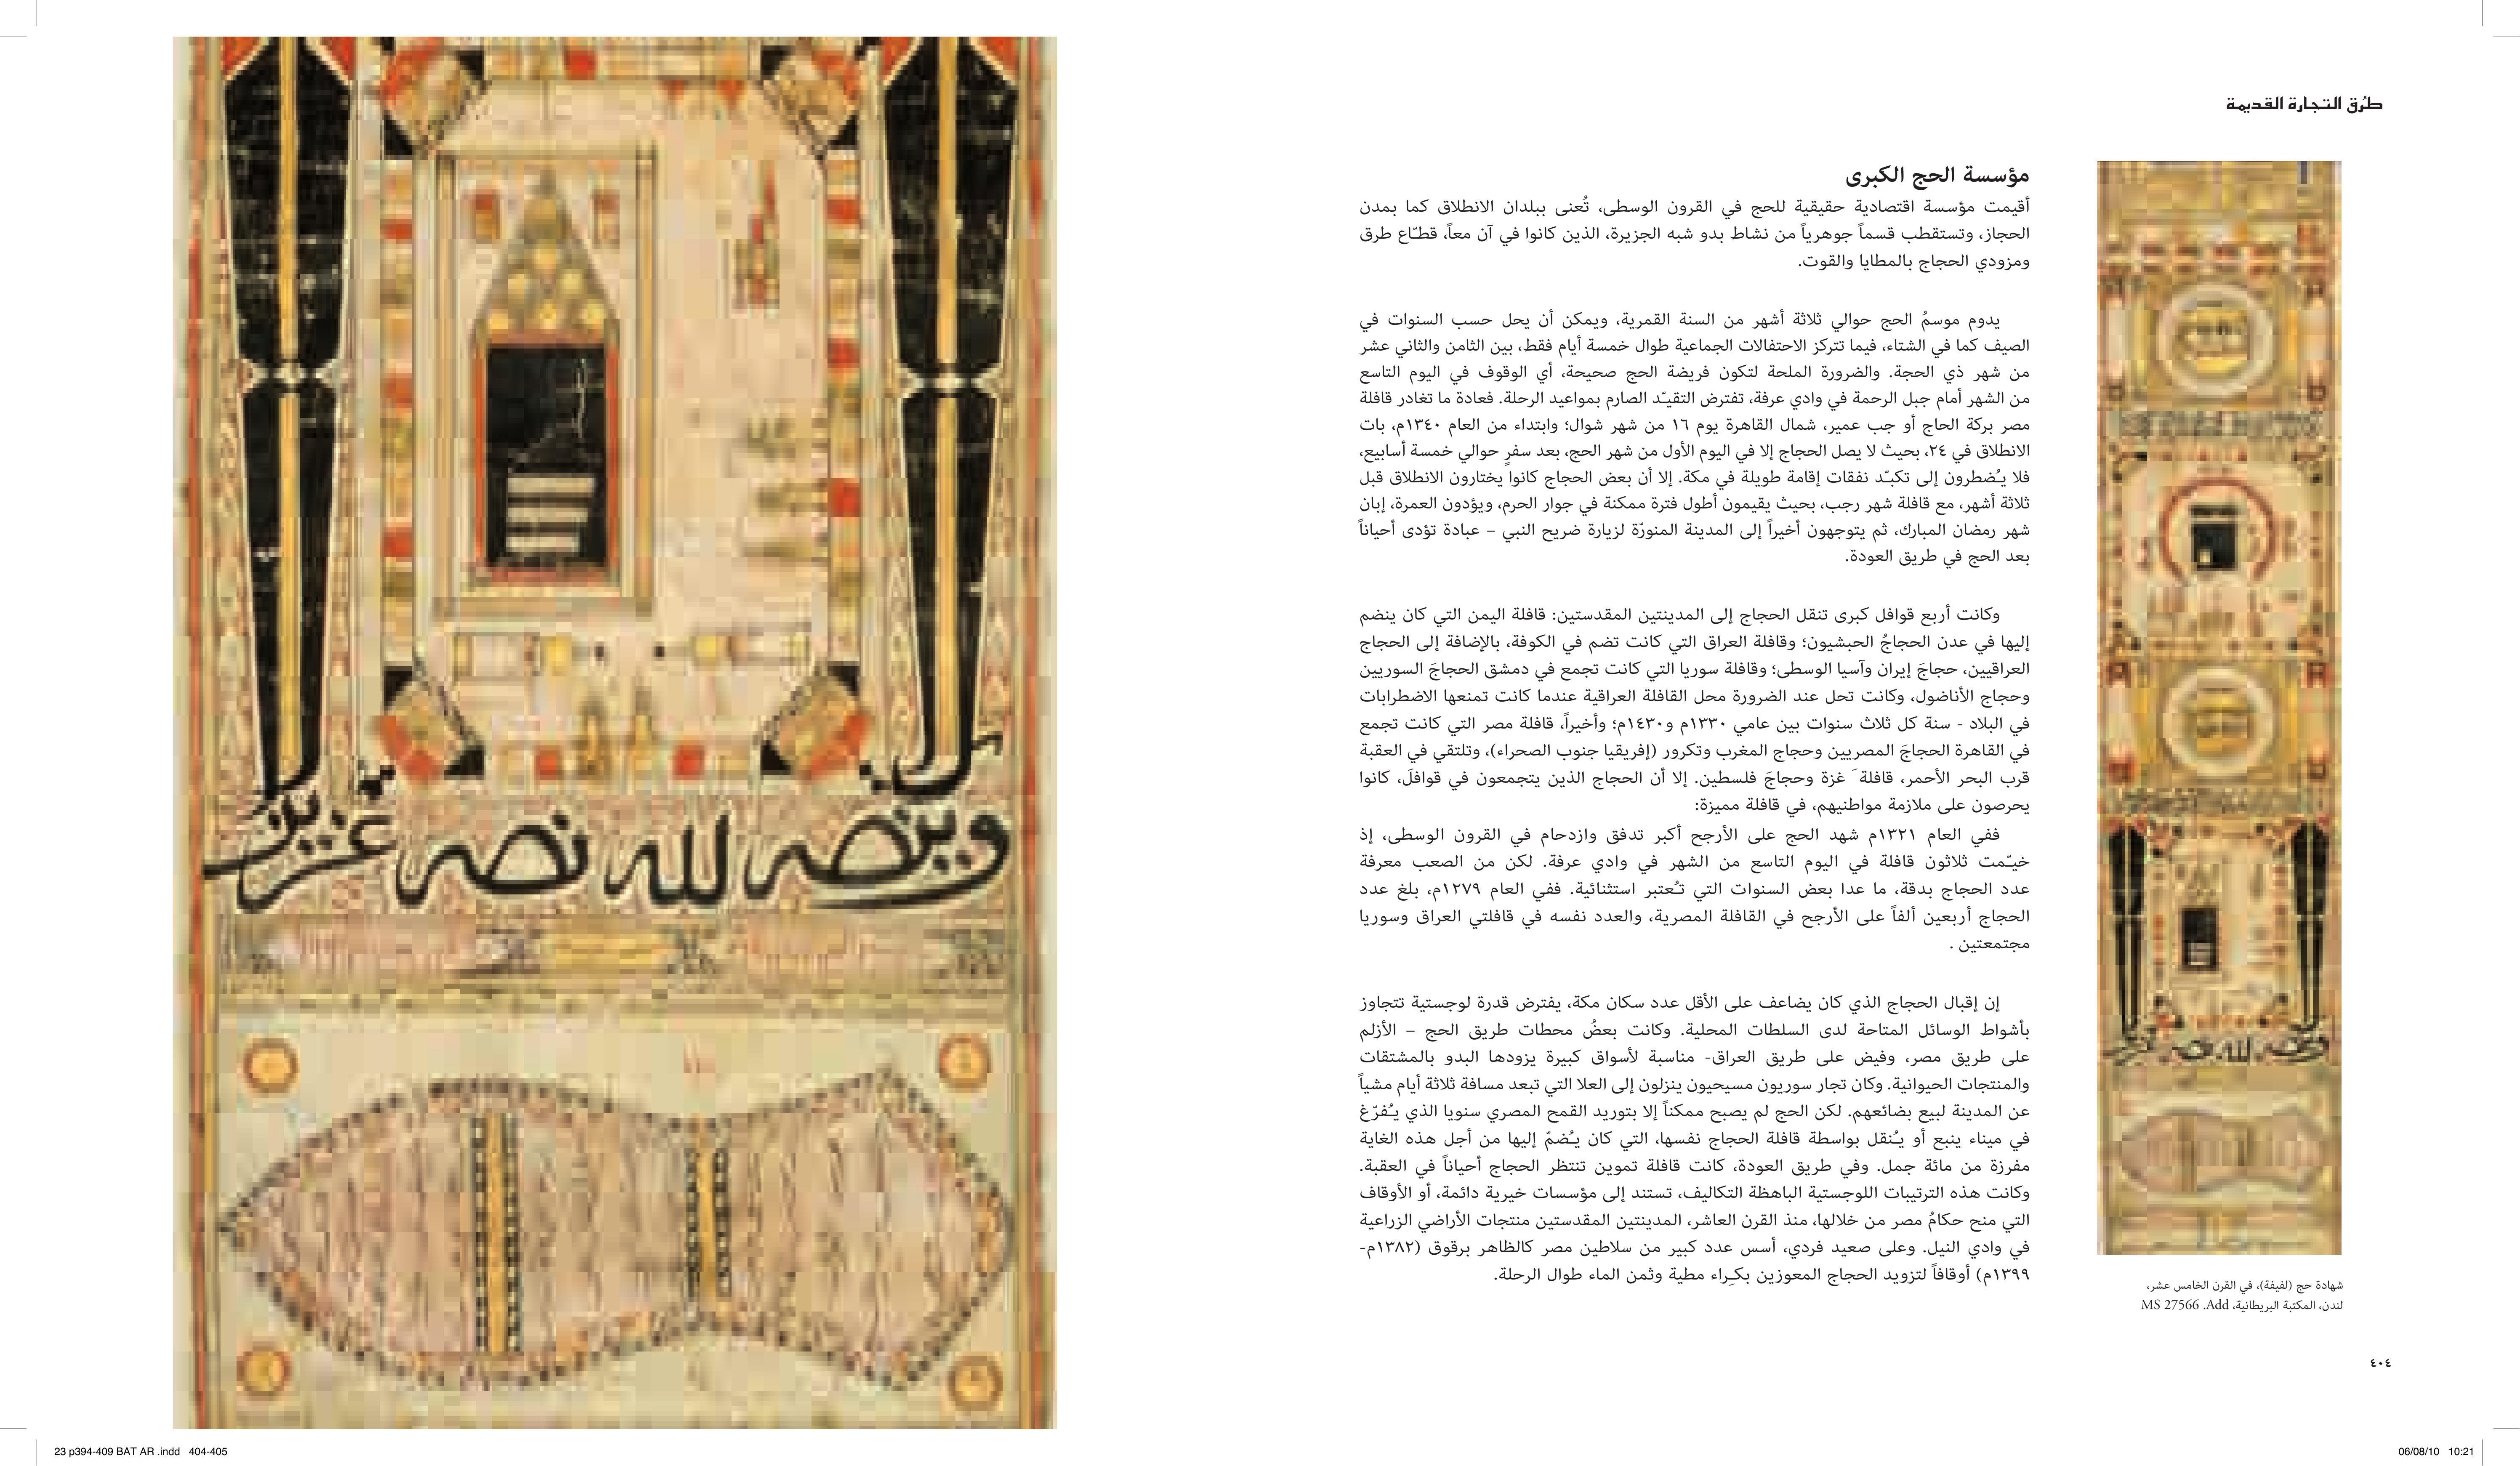 طرق التجارة القديمة
مؤسسة الحج الكبرى
أقيمت مؤسسة اقتصادية حقيقية للحج في القرون الوسطى، تُعنى ببلدان الانطلاق كما بمدن
الحجاز، وتستقطب قسماً جوهرياً من نشاط بدو شبه الجزيرة، الذين كانوا في آن معاً، قطّاع طرق
ومزودي الحجاج بالمطايا والقوت.
يدوم موسمُ الحج حوالي ثلاثة أشهر من السنة القمرية، ويمكن أن يحل حسب السنوات في
الصيف كما في الشتاء، فيما تتركز الاحتفالات الجماعية طوال خمسة أيام فقط، بين الثامن والثاني عشر
من شهر ذي الحجة. والضرورة الملحة لتكون فريضة الحج صحيحة، أي الوقوف في اليوم التاسع
من الشهر أمام جبل الرحمة في وادي عرفة، تفترض التقيّد الصارم بمواعيد الرحلة. فعادة ما تغادر قافلة
مصر بركة الحاج أو جب عمير، شمال القاهرة يوم ١٦ من شهر شوال؛ وابتداء من العام ١٣٤٠م، بات
الانطلاق في ٢٤، بحيث لا يصل الحجاج إلا في اليوم الأول من شهر الحج، بعد سفرٍ حوالي خمسة أسابيع،
فلا يُضطرون إلى تكبّد نفقات إقامة طويلة في مكة. إلا أن بعض الحجاج كانوا يختارون الانطلاق قبل
ثلاثة أشهر، مع قافلة شهر رجب، بحيث يقيمون أطول فترة ممكنة في جوار الحرم، ويؤدون العمرة، إبان
شهر رمضان المبارك، ثم يتوجهون أخيراً إلى المدينة المنورّة لزيارة ضريح النبي – عبادة تؤدى أحياناً
بعد الحج في طريق العودة.
وكانت أربع قوافل كبرى تنقل الحجاج إلى المدينتين المقدستين: قافلة اليمن التي كان ينضم
إليها في عدن الحجاجُ الحبشيون؛ وقافلة العراق التي كانت تضم في الكوفة، بالإضافة إلى الحجاج
العراقيين، حجاجَ إيران وآسيا الوسطى؛ وقافلة سوريا التي كانت تجمع في دمشق الحجاجَ السوريين
وحجاج الأناضول، وكانت تحل عند الضرورة محل القافلة العراقية عندما كانت تمنعها الاضطرابات
في البلاد - سنة كل ثلاث سنوات بين عامي ١٣٣٠م و١٤٣٠م؛ وأخيراً، قافلة مصر التي كانت تجمع
في القاهرة الحجاجَ المصريين وحجاج المغرب وتكرور (إفريقيا جنوب الصحراء)، وتلتقي في العقبة
قرب البحر الأحمر، قافلةَ غزة وحجاجَ فلسطين. إلا أن الحجاج الذين يتجمعون في قوافلَ، كانوا
يحرصون على ملازمة مواطنيهم، في قافلة مميزة:
ففي العام ١٣٢١م شهد الحج على الأرجح أكبر تدفق وازدحام في القرون الوسطى، إذ
خيّمت ثلاثون قافلة في اليوم التاسع من الشهر في وادي عرفة. لكن من الصعب معرفة
عدد الحجاج بدقة، ما عدا بعض السنوات التي تُعتبر استثنائية. ففي العام ١٢٧٩م، بلغ عدد
الحجاج أربعين ألفاً على الأرجح في القافلة المصرية، والعدد نفسه في قافلتي العراق وسوريا
مجتمعتين .
إن إقبال الحجاج الذي كان يضاعف على الأقل عدد سكان مكة، يفترض قدرة لوجستية تتجاوز
بأشواط الوسائل المتاحة لدى السلطات المحلية. وكانت بعضُ محطات طريق الحج – الأزلم
على طريق مصر، وفيض على طريق العراق- مناسبة لأسواق كبيرة يزودها البدو بالمشتقات
والمنتجات الحيوانية. وكان تجار سوريون مسيحيون ينزلون إلى العلا التي تبعد مسافة ثلاثة أيام مشياً
عن المدينة لبيع بضائعهم. لكن الحج لم يصبح ممكناً إلا بتوريد القمح المصري سنويا الذي يُفرّغ
في ميناء ينبع أو يُنقل بواسطة قافلة الحجاج نفسها، التي كان يُضمّ إليها من أجل هذه الغاية
مفرزة من مائة جمل. وفي طريق العودة، كانت قافلة تموين تنتظر الحجاج أحياناً في العقبة.
وكانت هذه الترتيبات اللوجستية الباهظة التكاليف، تستند إلى مؤسسات خيرية دائمة، أو الأوقاف
التي منح حكامُ مصر من خلالها، منذ القرن العاشر، المدينتين المقدستين منتجات الأراضي الزراعية
في وادي النيل. وعلى صعيد فردي، أسس عدد كبير من سلاطين مصر كالظاهر برقوق (١٣٨٢م-
١٣٩٩م) أوقافاً لتزويد الحجاج المعوزين بكِراء مطية وثمن الماء طوال الرحلة.
شهادة حج (لفيفة)، في القرن الخامس عشر،
لندن، المكتبة البريطانية، MS 27566 .Add
٤٠٤
وينصر لله نصر عزيز
23 p394-409 BAT AR .indd 404-405
06/08/10 10:21